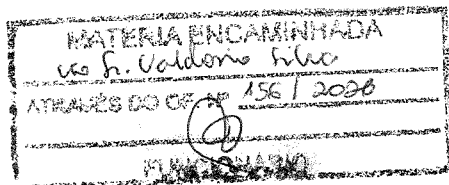 MATERIA ENCAMINHADA
ao Sr. Valdomo Silva
ATRAVÉS DO OF. Nº 156 / 2020
FUNCIONÁRIO